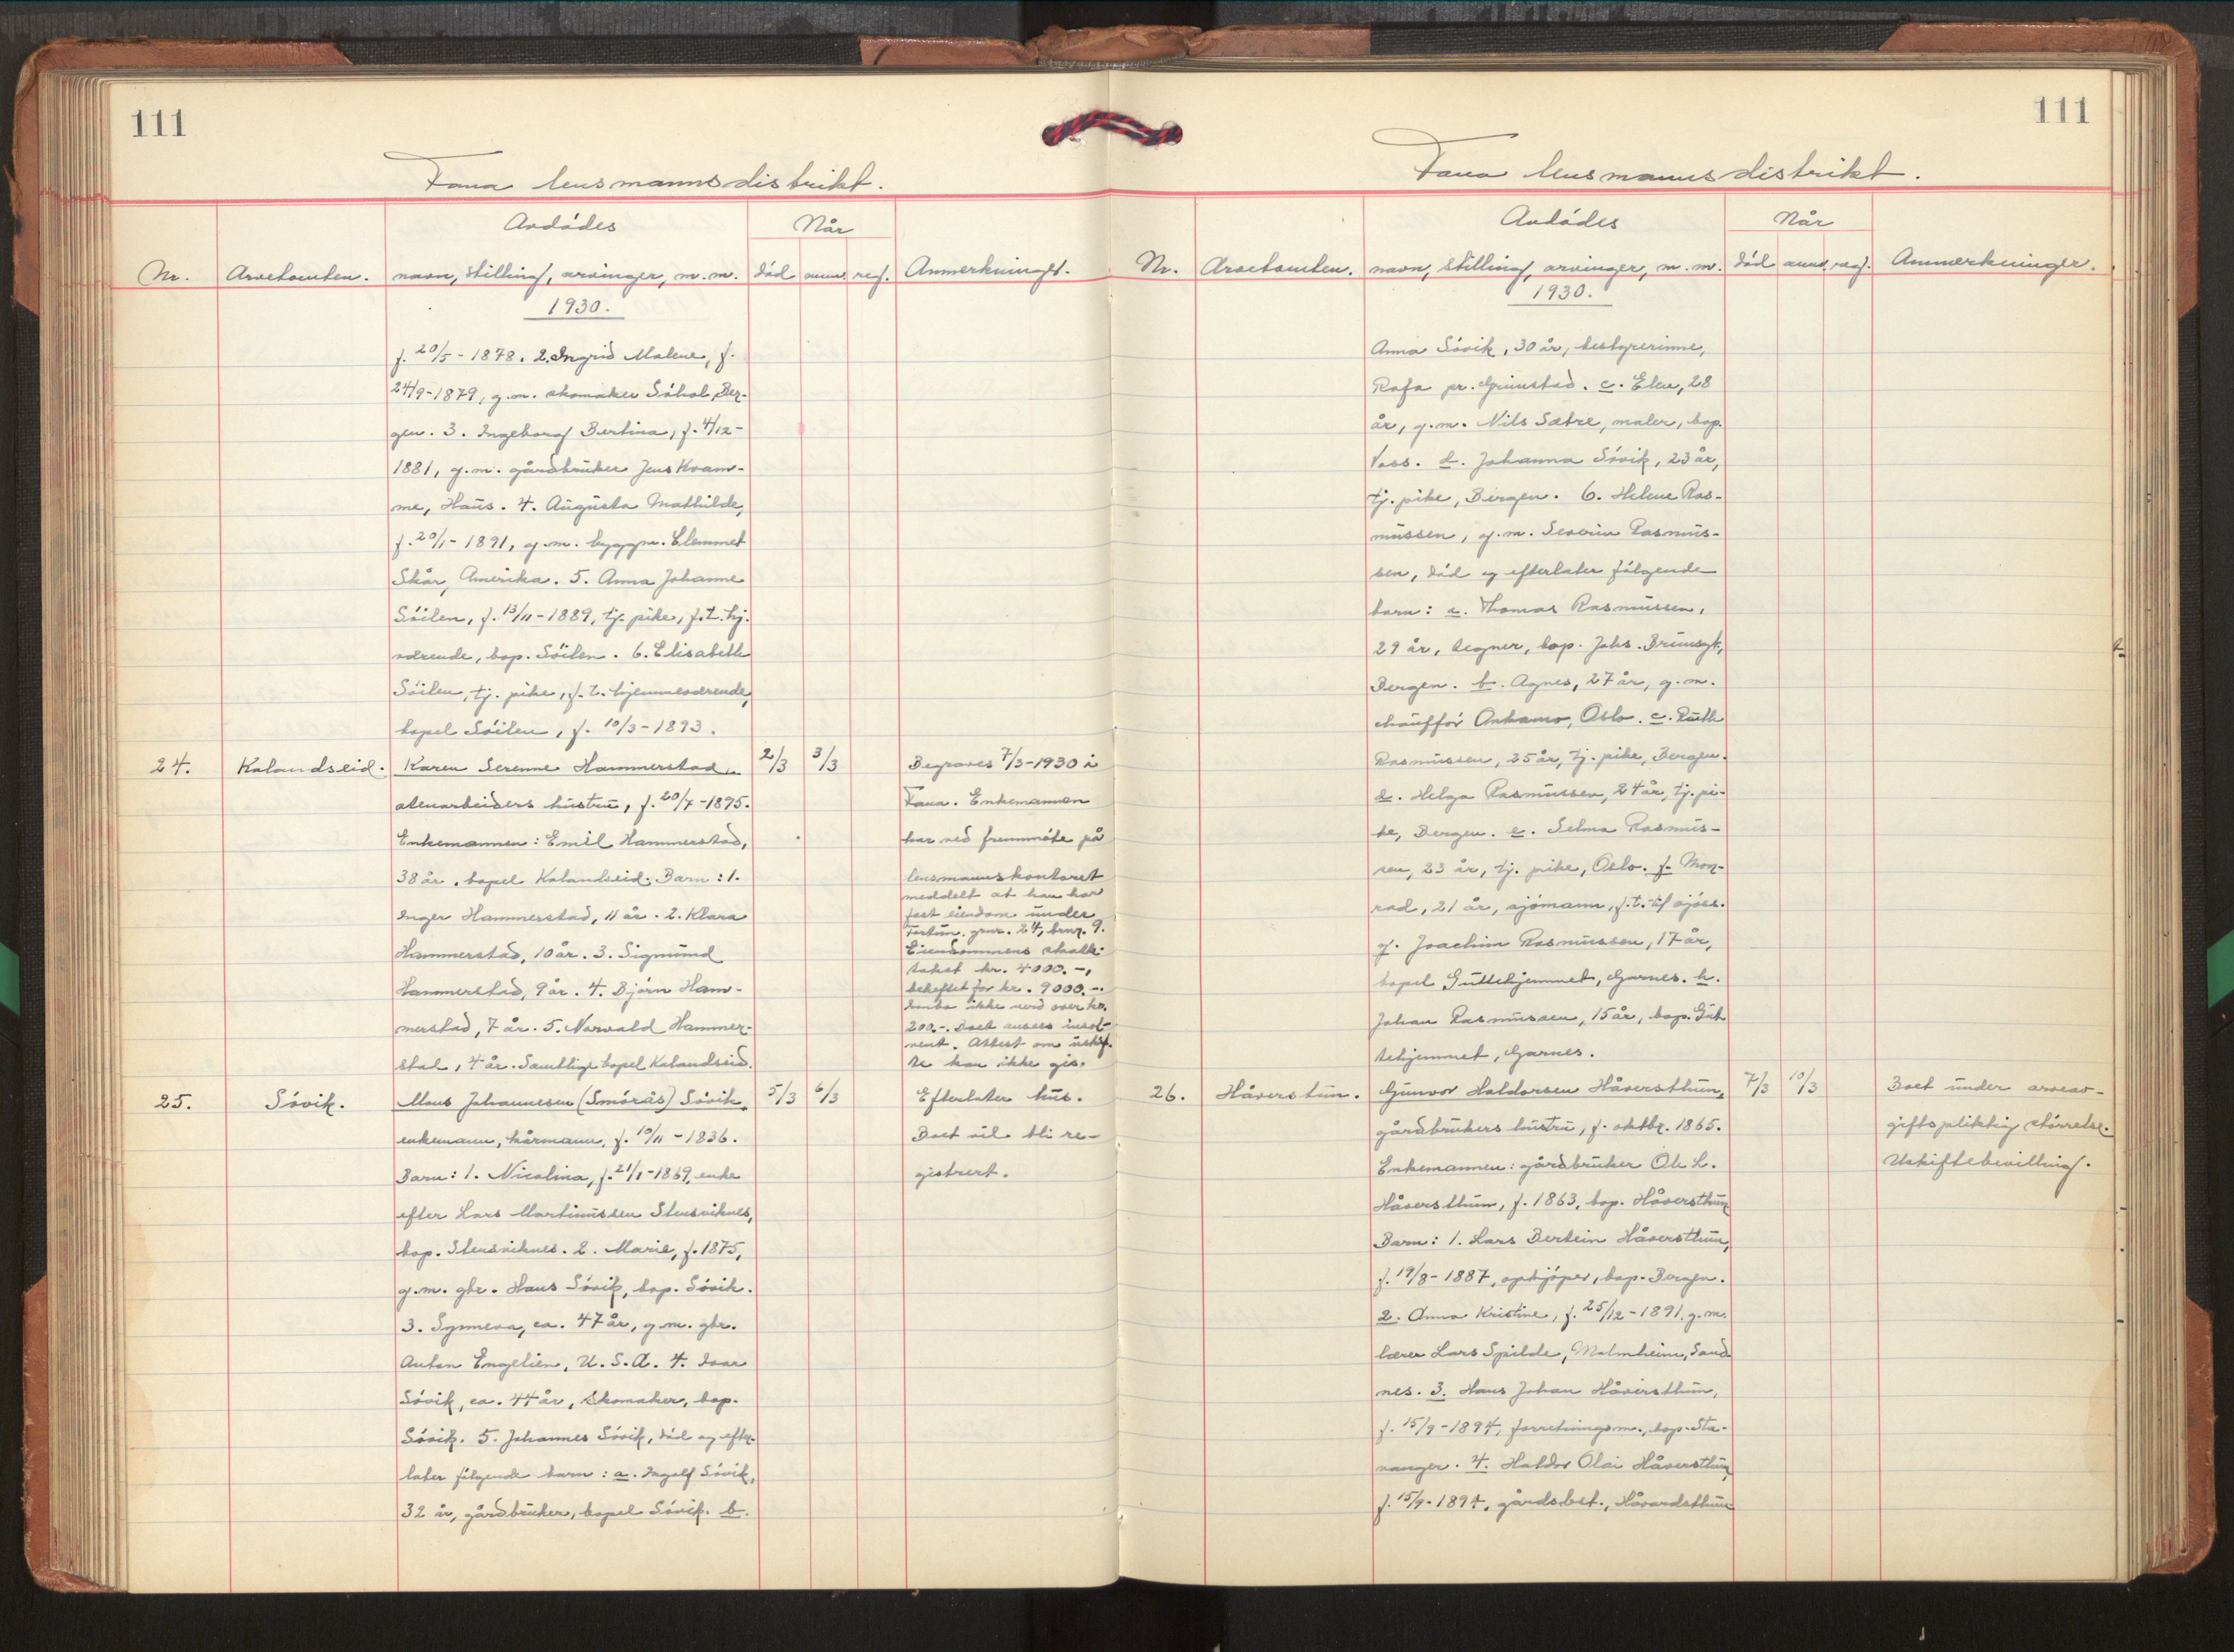 111
Fana lensmannsdistrikt.
Avdødes
Når
Nr.
Arvetomten.
navn, stilling, arvinger, m.m.
død
anm.
reg.
Anmerkninger.
1930.
f. 20/5 - 1878. 2. Ingrid Malene, f.
24/9-1879, g.m. skomaker Søhol, Ber-
gen. 3. Ingeborg Bertina, f. 4/12-
1881, g.m. gårdbruker Jens Kvam-
me, Haus. 4. Augusta Mathilde,
f. 20/1- 1891, g.m. byggm. Clemmet
Skår, Amerika. 5. Anna Johanne
Søilen, f. 13/11-1889, tj. pike, f.t. hj.
værende, bop. Søilen. 6. Elisabeth
Søilen, tj. pike, f.t. hjemmeværende,
bopel Søilen, f. 10/3-1893.
24.
Kalandseid.
Karen Serenne Hammerstad
2/3
3/3
Begraves 7/3-1930 i
hustru, f. 20/7-1895.
Fana. Enkemannen
Enkemannen: Emil Hammerstad,
har ved fremmøte på
38 år, bopel Kalandseid. Barn: 1.
lensmannskontoret
meddelt at han har
Inger Hammerstad, 11 år. 2. Klara
fast eiendom under
gnr. 24, brnr. 9.
Hammerstad, 10 år. 3. Sigmund
Eiendommens skatte-
takst kr. 4000.-,
Hammerstad, 9 år. 4. Bjørn Ham-
beheftet for kr. 9000.-.
Innbo ikke verd over kr.
merstad, 7 år. 5. Norvald Hammer-
200.-. Boet ansees insol-
vent. Attest om uskif-
stad, 4 år. Samtlige bopel Kalandseid.
te kan ikke gis.
25.
Søvik.
Mons Johannesen (Smörås) Søvik,
5/3
6/3
Efterlater hus.
enkemann, kårmann, f. 10/11 - 1836.
Boet vil bli re-
Barn: 1. Nicolina, f. 21/1-1869, enke
gistrert.
efter Lars Martinussen Stensviknes,
bop. Stensviknes. 2. Marie, f. 1875,
g.m. gbr. Hans Søvik, bop. Søvik.
3. Synneva, ca. 47 år, g.m. gbr.
Anton Engelien, U.S.A. 4. Ivar
Søvik, ca. 44 år, skomaker, bop.
Søvik. 5. Johannes Søvik, død og efter-
later følgende barn: a. Ingolf Søvik,
32 år, gårdbruker, bopel Søvik. b.
111
Fana lensmannsdistrikt.
Avdødes
Når
Nr.
Arvetomten.
navn, stilling, arvinger, m.m.
død
anm.
reg.
Anmerkninger.
1930.
Anna Søvik, 30 år, bestyrerinne,
Rafa pr. Grimstad. c. Elen, 28
år, g.m. Nils Sætre, maler, bop.
Voss. d. Johanna Søvik, 23 år,
tj. pike, Bergen. 6. Helene Ras-
mussen, g.m. Severin Rasmus-
sen, død og efterlater følgende
barn: a. Thomas Rasmussen,
29 år, tegner, bop. Johs. Brunsgt.,
Bergen. b. Agnes, 27 år, g.m.
chauffør Oslo. c. Ruth
Rasmussen, 25 år, tj. pike, Bergen.
d. Helga Rasmussen, 24 år, tj. pi-
ke, Bergen. e. Selma Rasmus-
sen, 23 år, tj. pike, Oslo. f. Mon-
rad, 21 år, sjømann, f.t. til sjøss.
g. Joachim Rasmussen, 17 år,
bopel Guttehjemmet, Garnes. h.
Johan Rasmussen, 15 år, bop. Gut-
tehjemmet, Garnes.
26.
Håverstun.
Gunvor Haldorsen Håversthun,
7/3
10/3
Boet under arveav-
gårdbrukers hustru, f. oktbr. 1865.
giftspliktig størrelse.
Enkemannen: gårdbruker Ole L.
Uskiftebevilling.
Håversthun, f. 1863, bop. Håversthun
Barn: 1. Lars Bertein Håversthun,
f. 19/8-1887, opkjøper, bop. Bergen.
2. Anna Kristine, f. 25/12-1891, g.m.
lærer Lars Spilde, Malmheim, Sand-
nes. 3. Hans Johan Håversthun,
f. 15/9-1894, forretningsm., bop. Sta-
vanger. 4. Haldor Olai Håversthun
f. 15/9-1894, gårdsbest., Håvardsthun